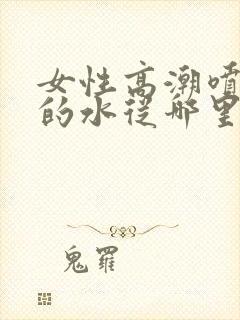 女性高潮喷
的水从哪里
鬼罗